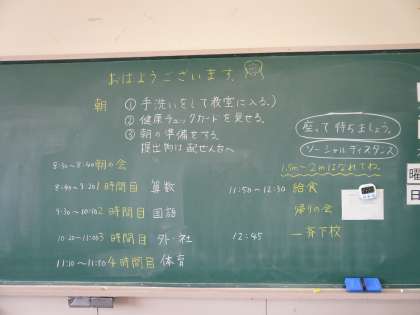 おはようございます。
朝 ①手洗いをして教室に入る。
②健康チェックカードを見せる。
③朝の準備をする。
提出物は配ぜん台へ
座って待ちましょう。
ソーシャルディスタンス
1.5m〜2mはなれてね。
8:30〜8:40 朝の会
8:40〜9:20 1時間目 算数
9:30〜10:10 2時間目 国語
10:20〜11:00 3時間目 外・社
11:10〜11:50 4時間目 体育
11:50〜12:30 給食
帰りの会
12:45 一斉下校
曜
日